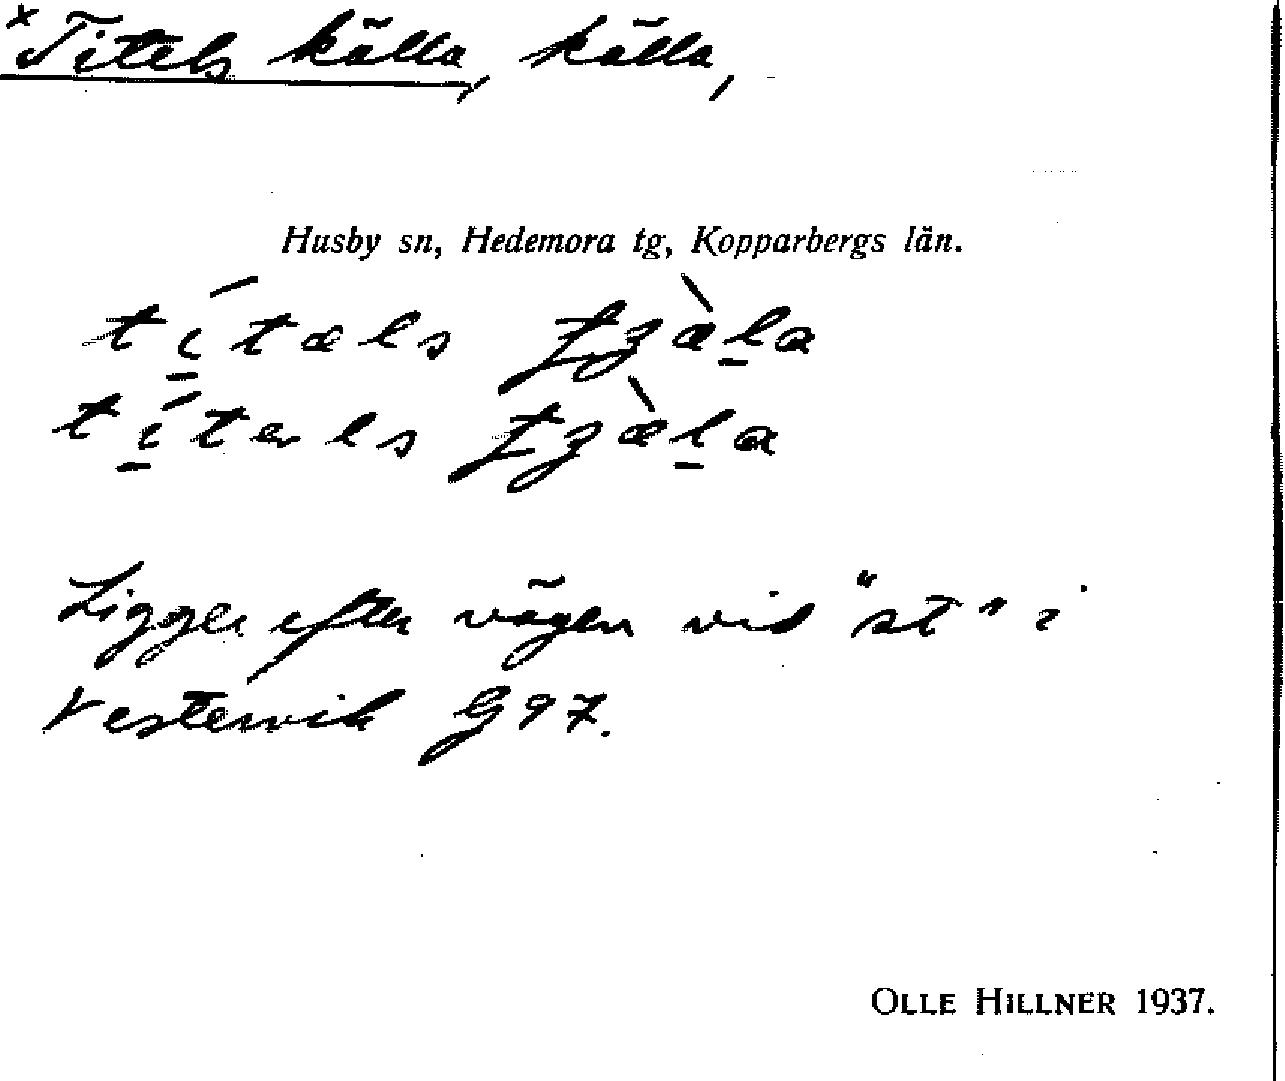 × Titels källa, källa,
Husby sn, Hedemora tg, Kopparbergs län.
títæls
títəls
Ligger efter vägen vid "st" i
Vestervik G97.
OLLE HILLNER 1937.